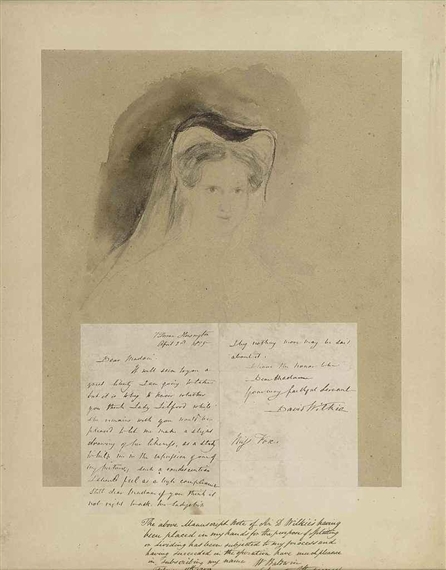 April 3rd 1835
Dear Madam
It will seem to you a
great liberty I am going to take
but it is only to know whether
you think Lady Lilford while
she remains with you would be
pleased to let me make a slight
drawing of her likeness, as a study
to help me in the expression of one of
my pictures, such a condescension
I should feel as a high compliment
Still dear Madam if you think it
not right
nothing more may be said
about it.
I have the honor to be
Dear Madam
Your very faithful Servant
David Wilkie
Miss Fox
The above Manuscript Note of Mr D Wilkies having
been placed in my hands for the purpose of Splitting
or dividing has been subjected to my process and
having succeeded in the operation have much pleasure
in subscribing my name W Baldwin